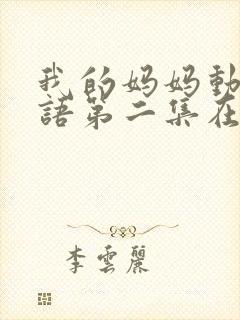 我的妈妈動
語第二集在
李雲麗